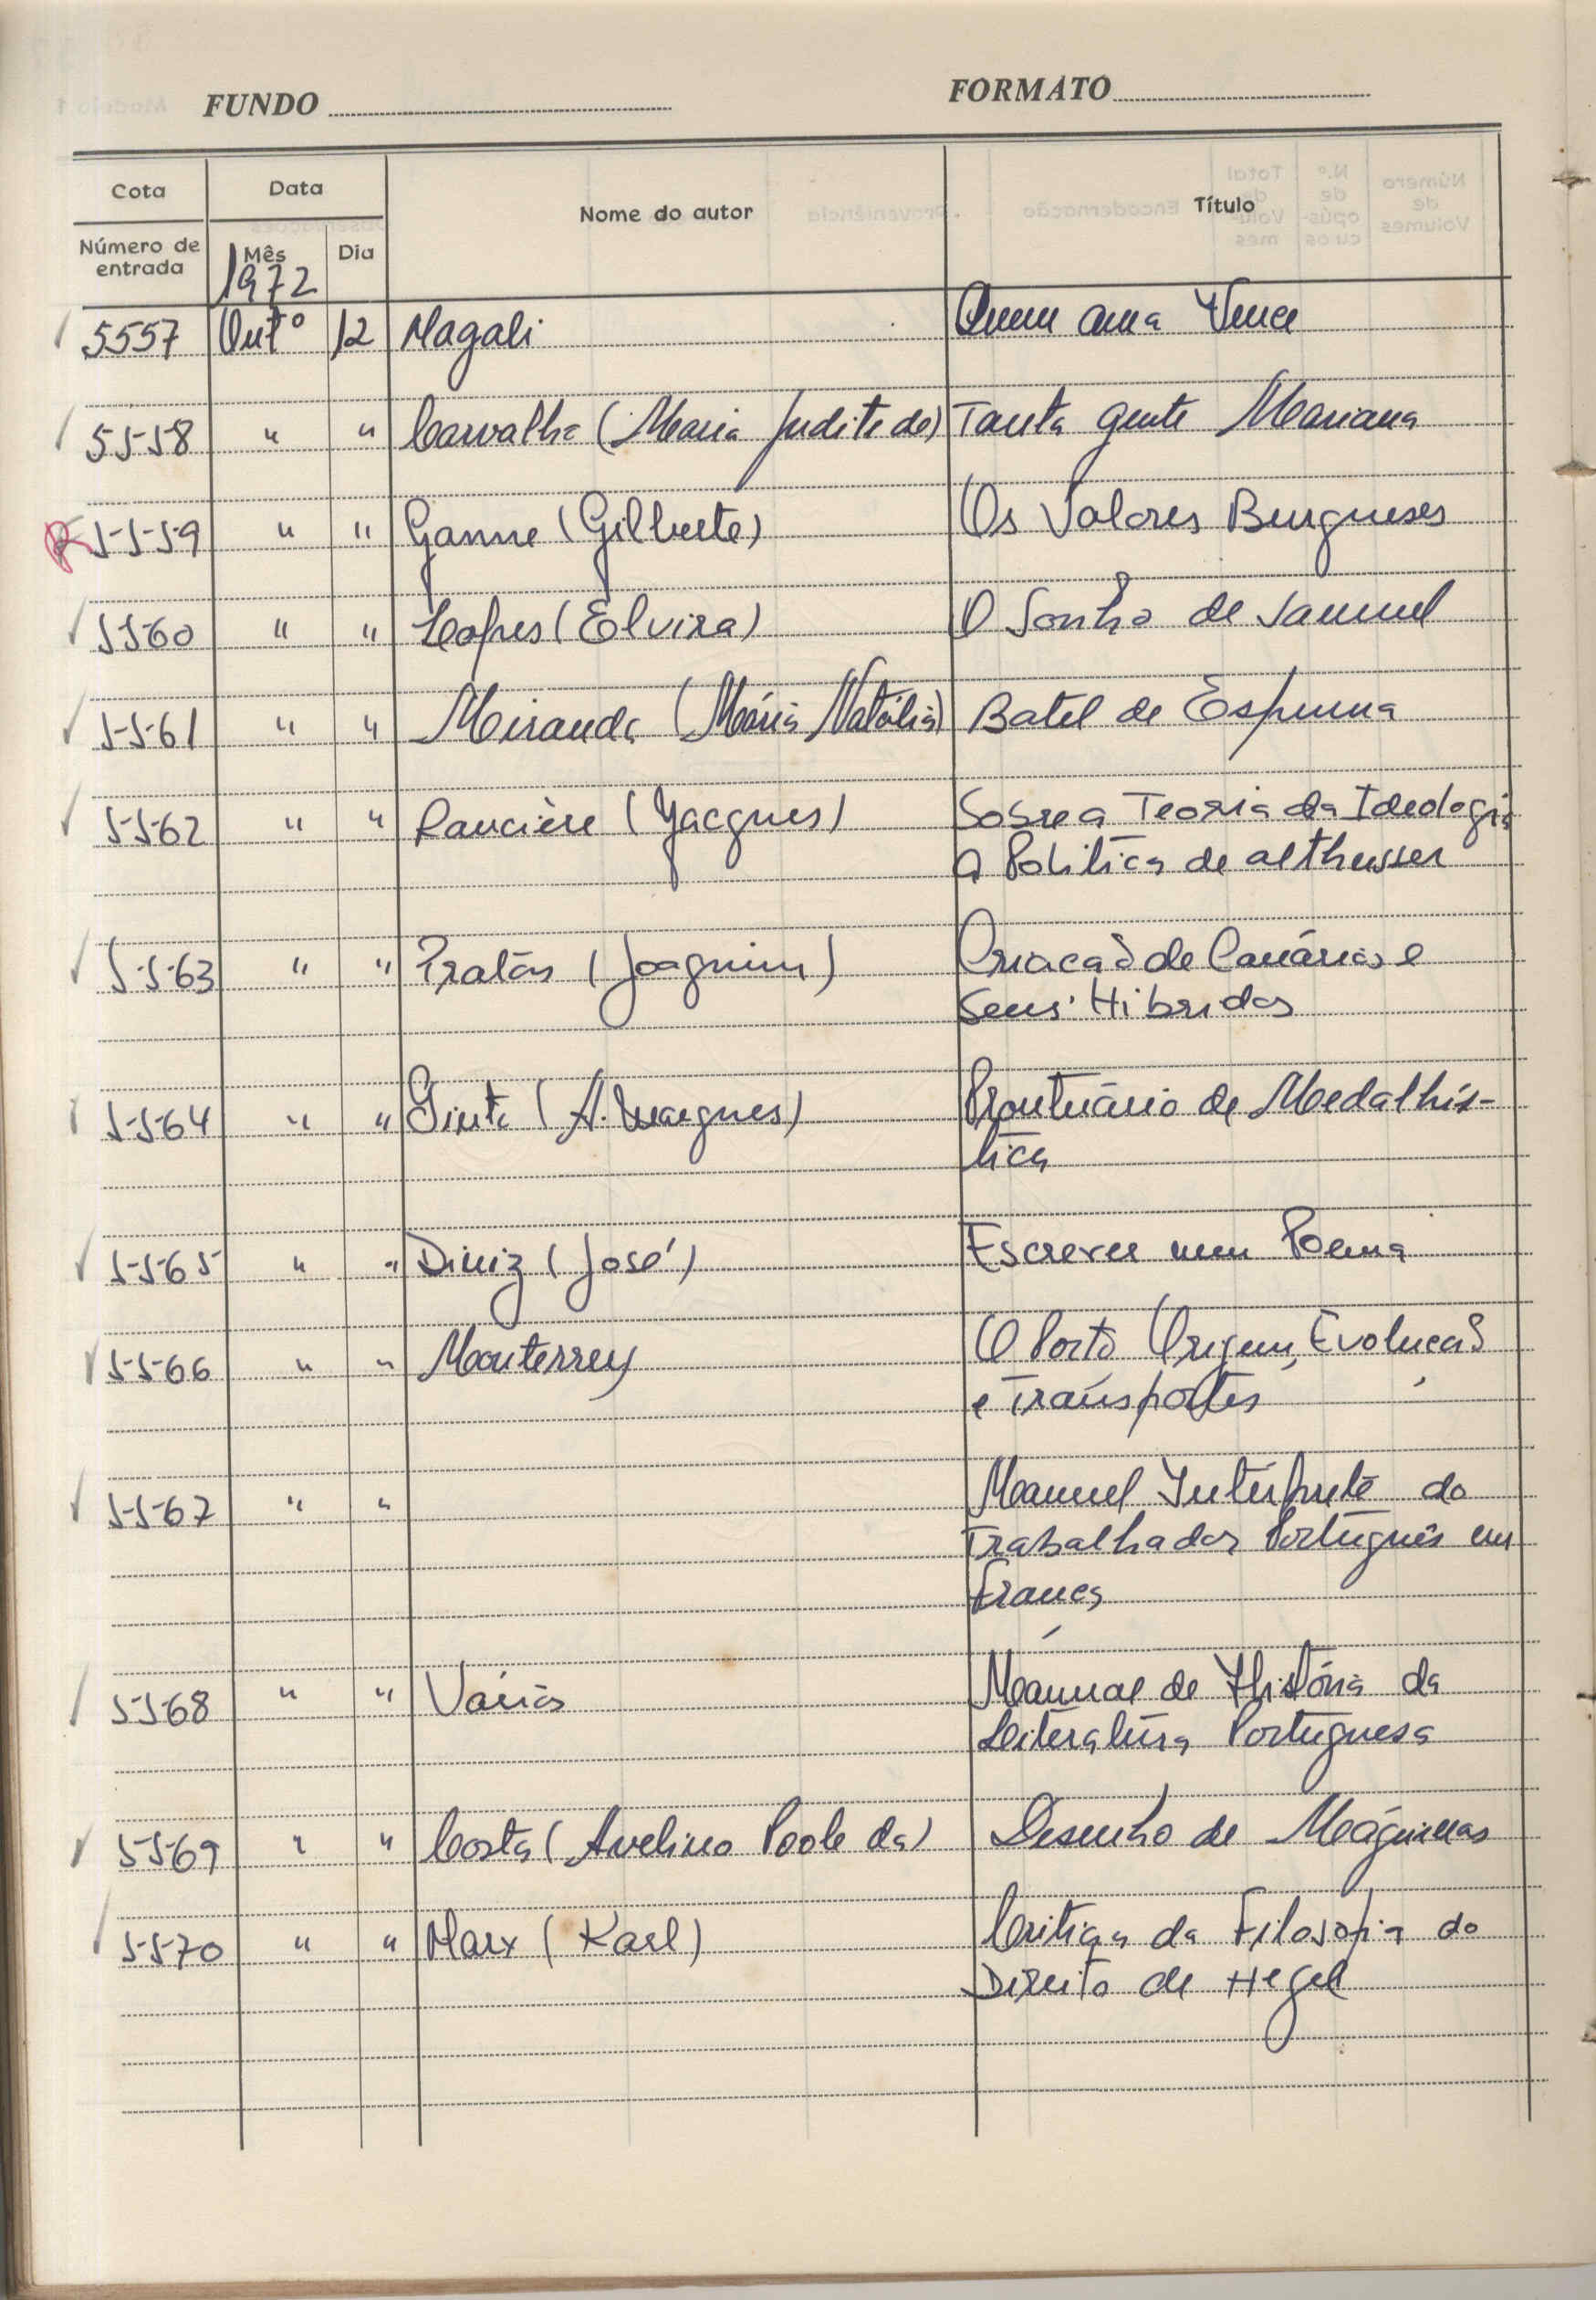 FUNDO FORMATO
Cota Data Nome do autor Título
Número de entrada Mês Dia
1972
5557 Outº 12 Magali Quem ama Vence
5558 " " Carvalho (Maria Judite de) Tanta gente Mariana
R 5559 " " Ganne (Gilberte) Os Valores Burgueses
5560 " " Lopes (Elvira) O Sonho de Samuel
5561 " " Miranda (Maria Natália) Batel de Espuma
5562 " " Rancière (Jacques) Sobre a Teoria da Ideologia
a Politica de althusser
5563 " " Pratas (Joaquim) Criação de Canários e
Seus Hibridos
5564 " " Pinto (A. Marques) Prontuário de Medalhís-
tica
5565 " " Diniz (José) Escrever num Poema
5566 " " Monterrey O Porto Origem, Evolução
e Transportes
5567 " " Manuel Intérprete do
Trabalhador Português em
França
5568 " " Vários Manual de História da
Literatura Portuguesa
5569 " " Costa (Avelino Poole da) Desenho de Máquinas
5570 " " Marx (Karl) Critica da Filosofia do
Direito de Hegel